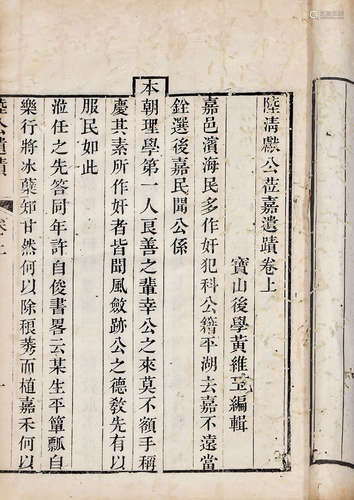 陸清獻公莅嘉遺蹟卷上
寶山後學黃維玉編輯
嘉邑濱海民多作奸犯科公籍平湖去嘉不遠當
銓選後嘉民聞公係
本朝理學第一人良善之輩幸公之來莫不額手稱
慶其素所作奸者皆聞風斂跡公之德教先有以
服民如此
涖任之先答同年許自俊書畧云某生平簞瓢自
樂行將冰蘗矢甘然何以除稂莠而植嘉禾何以
陸公遺蹟
卷上